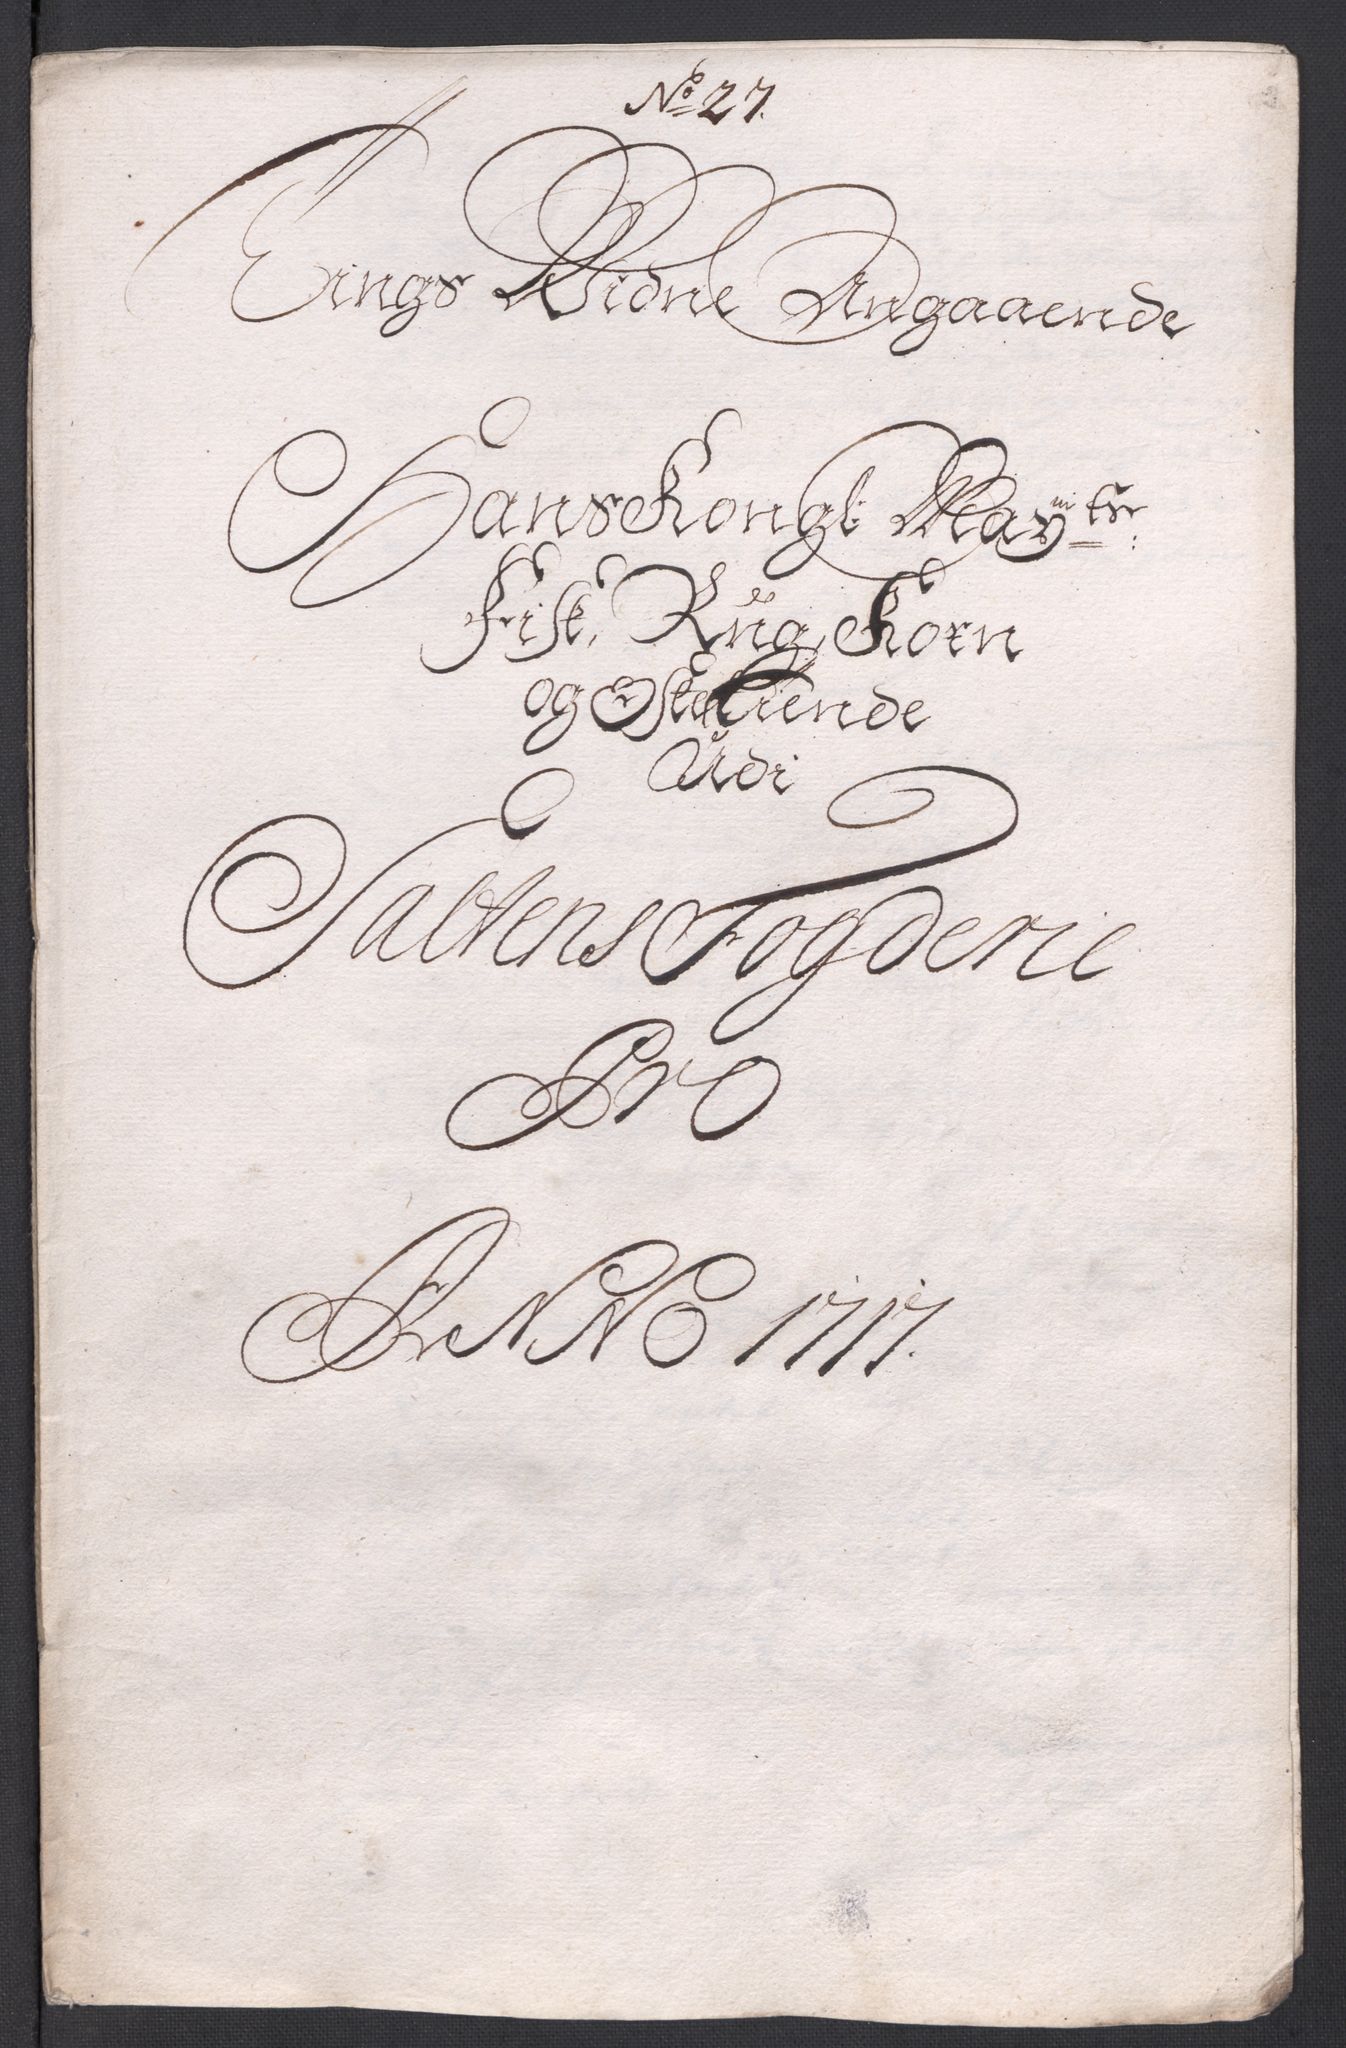 No 27.
Tings Widne Angaaende
Hans Kongl Mayttr
Fisk, Kug, Korn
og Oste Tiende
Udi
Saltens Fogderie
Pro
ANNO 1717.